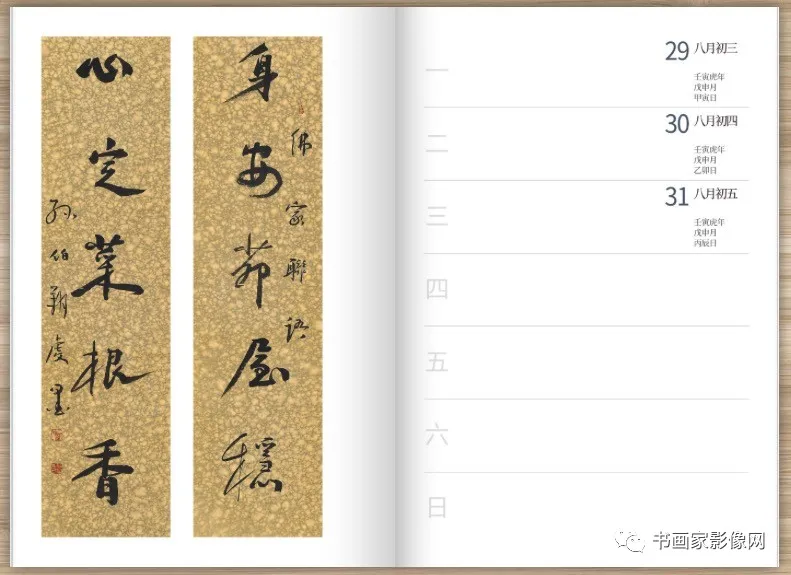 佛家聯語
身安茆屋穩
心定菜根香
孙伯翔虔墨
一
29 八月初三
壬寅虎年
戊申月
甲寅日
二
30 八月初四
壬寅虎年
戊申月
乙卯日
三
31 八月初五
壬寅虎年
戊申月
丙辰日
四
五
六
日
书画家影像网